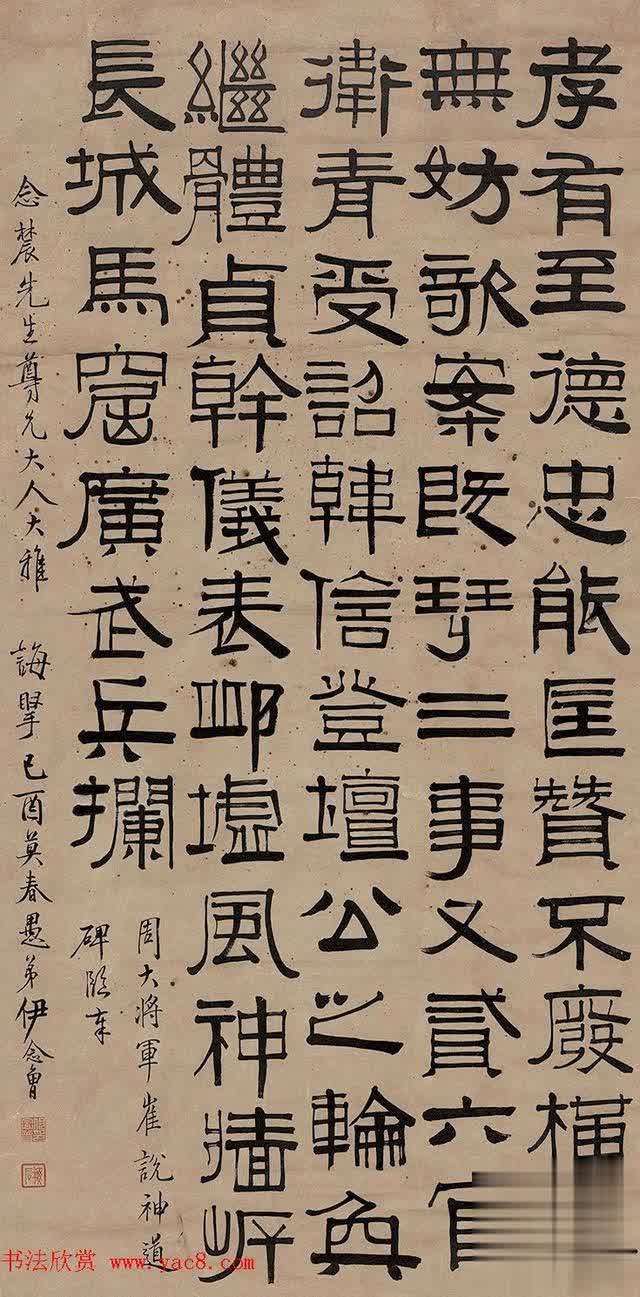 孝有至德忠能匡贊不廢
無妨歌案既三事又貳六官
衛青受詔韓信登壇公之輪奐
繼體貞幹儀表邱墟風神牆岸
長城馬窟廣武兵攔
周大將軍崔說神道
碑臨奉
念辳先生尊兄大人大雅 誨 己酉莫春愚弟伊念曾
书法欣赏 www.yac8.com